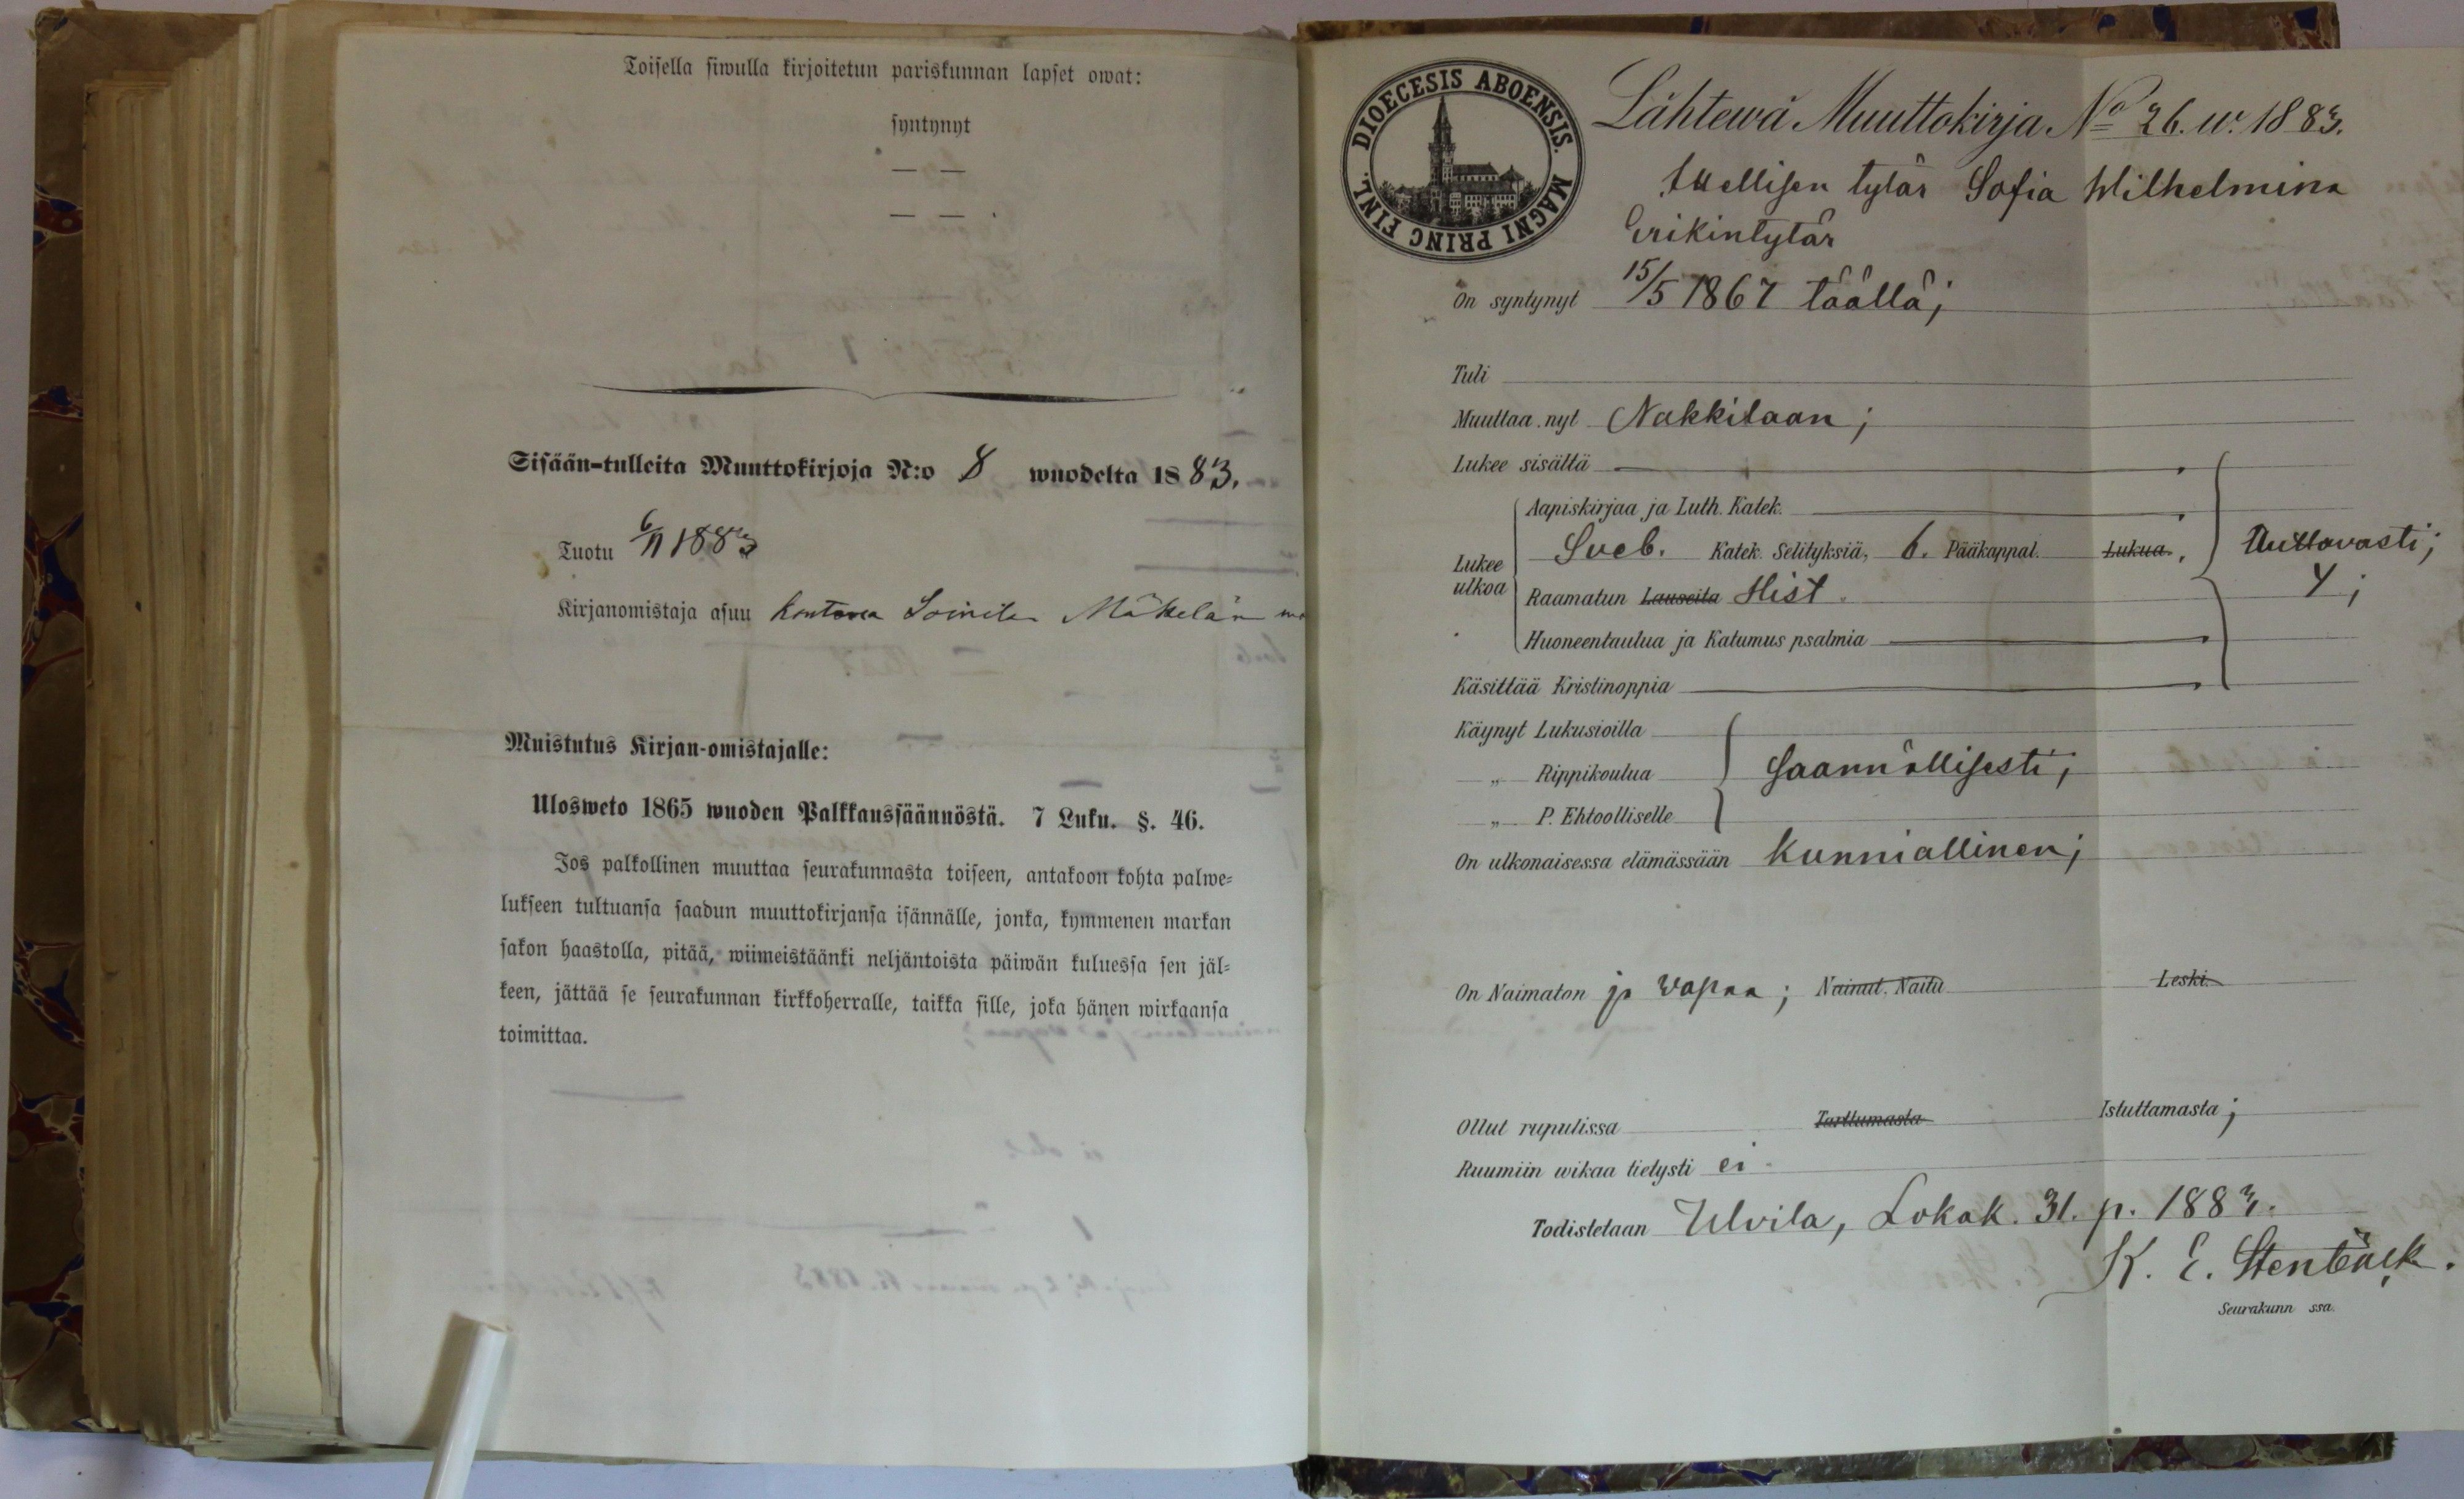 Toisella siwulla kirjoitetun pariskunnan lapset owat:
syntynyt
— —
— —
Sisään-tulleita Muuttokirjoja N:o 8 wuodelta 1883.
Tuotu 6/11 1883
Kirjanomistaja asuu Soinila Mäkelän
Muistutus Kirjan-omistajalle:
Ulosweto 1865 wuoden Palkkaussäännöstä. 7 Luku. §. 46.
Jos palkollinen muuttaa seurakunnasta toiseen, antakoon kohta palwe-
lukseen tultuansa saadun muuttokirjansa isännälle, jonka, kymmenen markan
sakon haastolla, pitää, wiimeistäänki neljäntoista päiwän kuluessa sen jäl-
keen, jättää se seurakunnan kirkkoherralle, taikka sille, joka hänen wirkaansa
toimittaa.
DIOECESIS ABOENSIS. MAGNI PRINC FINL.
Lähtewä Muuttokirja No 26. w. 1883.
Itsellisen tytär Sofia Wilhelmina
Erikintytär
On syntynyt 15/5 1867 täällä;
Tuli
Muuttaa nyt Nakkilaan;
Lukee sisältä
Aapiskirjaa ja Luth. Katek.
Lukee ulkoa
Sveb. Katek. Selityksiä, 6. Pääkappal. Lukua. Auttavasti;
Raamatun Lauseita Hist.
Huoneentaulua ja Katumus psalmia
Käsittää Kristinoppia
Käynyt Lukusioilla
„ Rippikoulua Säännöllisesti;
„ P. Ehtoolliselle
On ulkonaisessa elämässään Kunniallinen;
On Naimaton ja vapaa; Nainut. Naitu Leski.
Ollut rupulissa Tarttumasta Istuttamasta;
Ruumiin wikaa tietysti ei
Todistetaan Ulvila, Lokak. 31. p. 1883.
K. E. Stenbäck.
Seurakunn ssa.